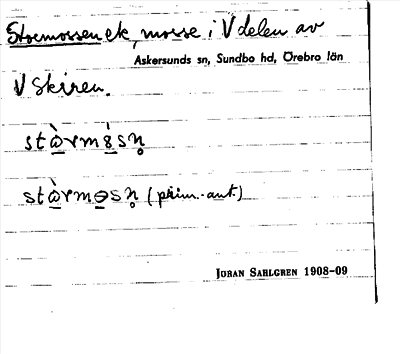 Stormossen etc, mosse i V delen av
Askersunds sn, Sundbo hd, Örebro län
V Skiren.
stò̱rmȣ̱̀sn̥
stò̱rmɵ̱sn̥ (prim.-ant.)
JOHAN SAHLGREN 1908-09